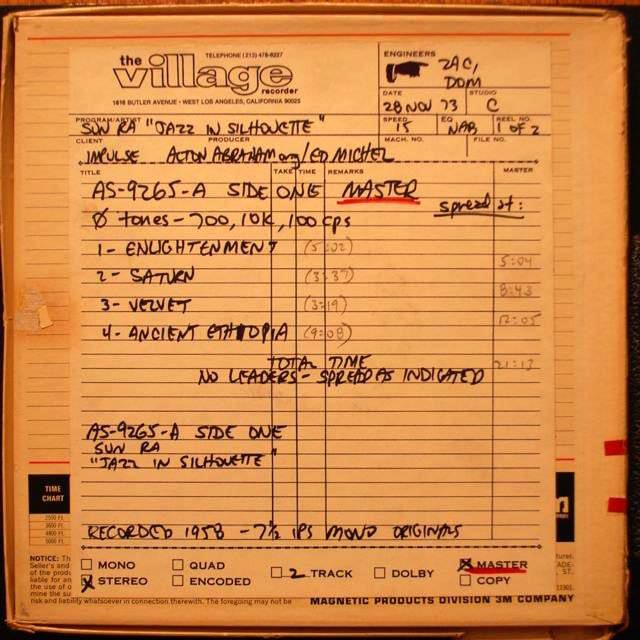 the village recorder
TELEPHONE (213) 478-8227
1616 BUTLER AVENUE • WEST LOS ANGELES, CALIFORNIA 90025
ENGINEERS
ZAC,
DOM
DATE STUDIO
28 NOV 73 C
PROGRAM/ARTIST SPEED EQ REEL NO.
SUN RA "JAZZ IN SILHOUETTE" 15 NAB 1 OF 2
CLIENT PRODUCER MACH. NO. FILE NO.
IMPULSE ALTON ABRAHAM org/ED MICHEL
TITLE TAKE TIME REMARKS MASTER
AS-9265-A SIDE ONE MASTER
spread at:
Ø tones - 700, 10K, 100 cps
1- ENLIGHTENMENT (5:02)
5:04
2- SATURN (3:37)
8:43
3- VELVET (3:19)
12:05
4- ANCIENT ETHIOPIA (9:08)
TOTAL TIME 21:13
NO LEADERS - SPREAD AS INDICATED
AS-9265-A SIDE ONE
SUN RA
"JAZZ IN SILHOUETTE"
RECORDED 1958 - 7½ IPS MONO ORIGINALS
TIME
CHART
2500 FT.
3600 FT.
4800 FT.
5000 FT.
MONO QUAD MASTER
STEREO ENCODED 2 TRACK DOLBY COPY
NOTICE: Th
Seller's and
of the produ
liable for an
the use of o
mine the su
risk and liability whatsoever in connection therewith. The foregoing may not be
MAGNETIC PRODUCTS DIVISION 3M COMPANY